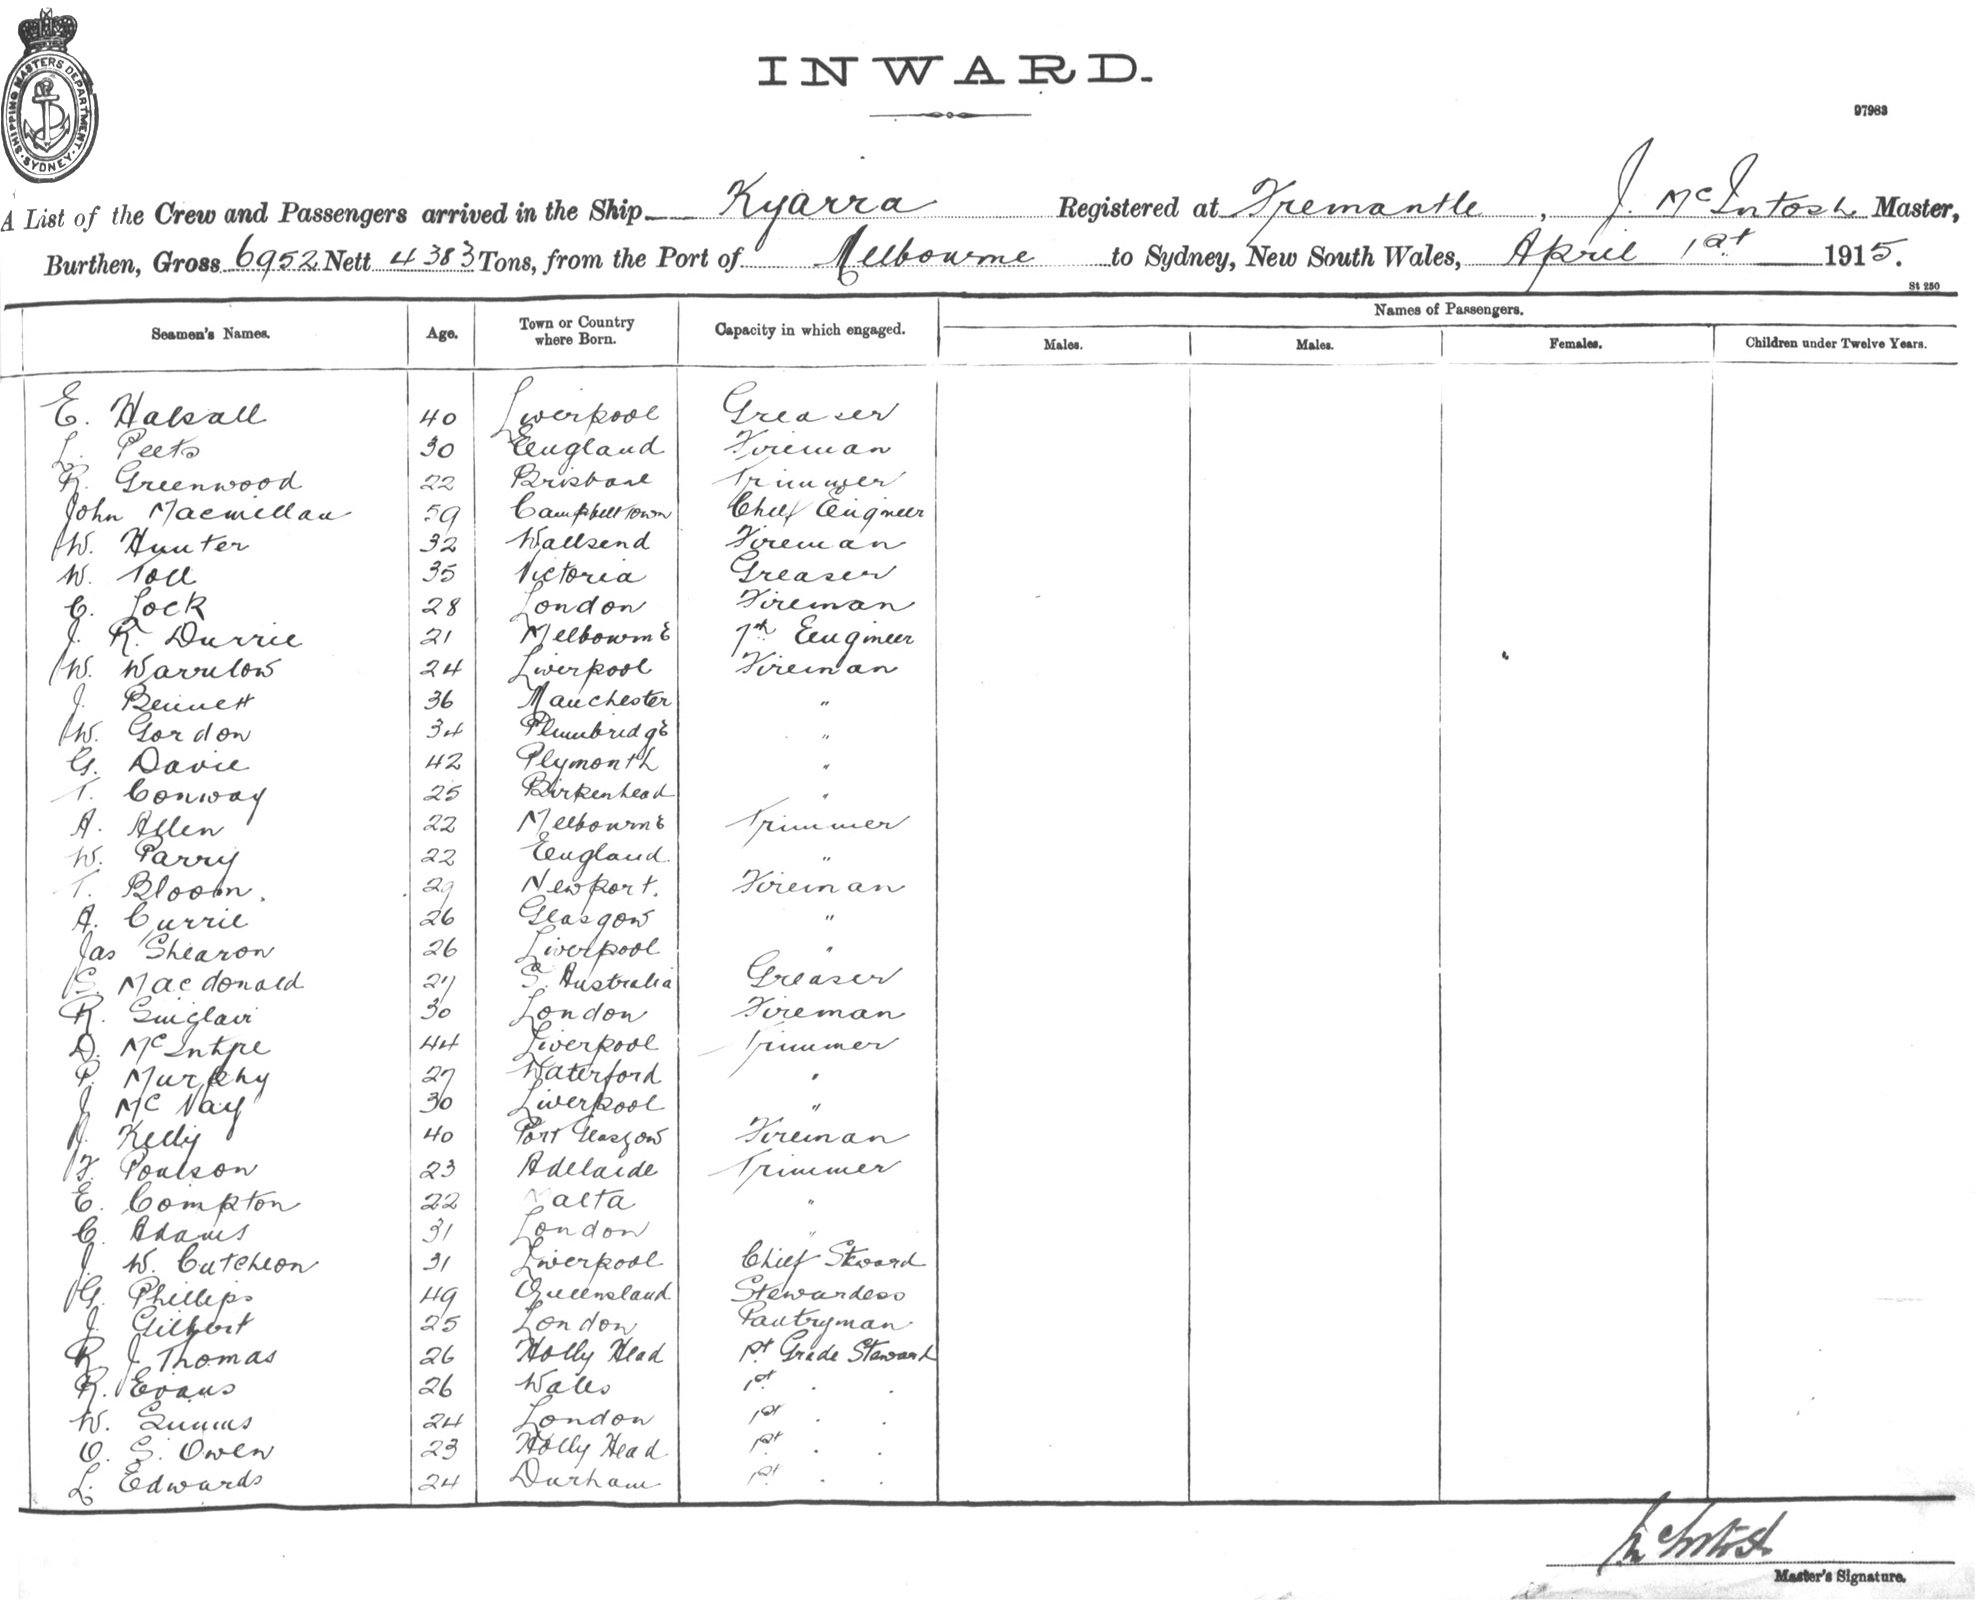 SHIPPING MASTERS DEPARTMENT. SYDNEY.
INWARD.
97983
A List of the Crew and Passengers arrived in the Ship Kyarra Registered at Fremantle, J. McIntosh Master,
Burthen, Gross 6952 Nett 4383 Tons, from the Port of Melbourne to Sydney, New South Wales, April 1st 1915.
St 250
Seamen's Names. Age. Town or Country where Born. Capacity in which engaged. Names of Passengers.
Males. Males. Females. Children under Twelve Years.
E. Halsall 40 Liverpool Greaser
L. Peets 30 England Fireman
R. Greenwood 22 Brisbane Trimmer
John Macmillan 59 Campbelltown Chief Engineer
W. Hunter 32 Wallsend Fireman
W. Toll 35 Victoria Greaser
C. Lock 28 London Fireman
J. R. Durrie 21 Melbourne 7th Engineer
W. Warrilow 24 Liverpool Fireman
J. Bennett 36 Manchester "
W. Gordon 34 Plumbridge "
G. Davie 42 Plymouth "
T. Conway 25 Birkenhead "
A. Allen 22 Melbourne Trimmer
W. Parry 22 England "
T. Bloom. 29 Newport. Fireman
A. Currie 26 Glasgow "
Jas Shearon 26 Liverpool "
S. Macdonald 27 S. Australia Greaser
R. Sinclair 30 London Fireman
D. McIntyre 44 Liverpool Trimmer
P. Murphy 27 Waterford "
J. McVay 30 Liverpool "
J. Kelly 40 Port Glasgow Fireman
F. Poulson 23 Adelaide Trimmer
E. Compton 22 Malta "
C. Adams 31 London "
J. W. Cutcheon 31 Liverpool Chief Steward
G. Phillips 49 Queensland Stewardess
J. Gilbert 25 London Pantryman
R. J. Thomas 26 Holly Head 1st Grade Steward
R. Evans 26 Wales 1st . .
W. Simms 24 London 1st . .
O. S. Owen 23 Holly Head 1st . .
L. Edwards 24 Durham 1st . .
McIntosh
Master's Signature.